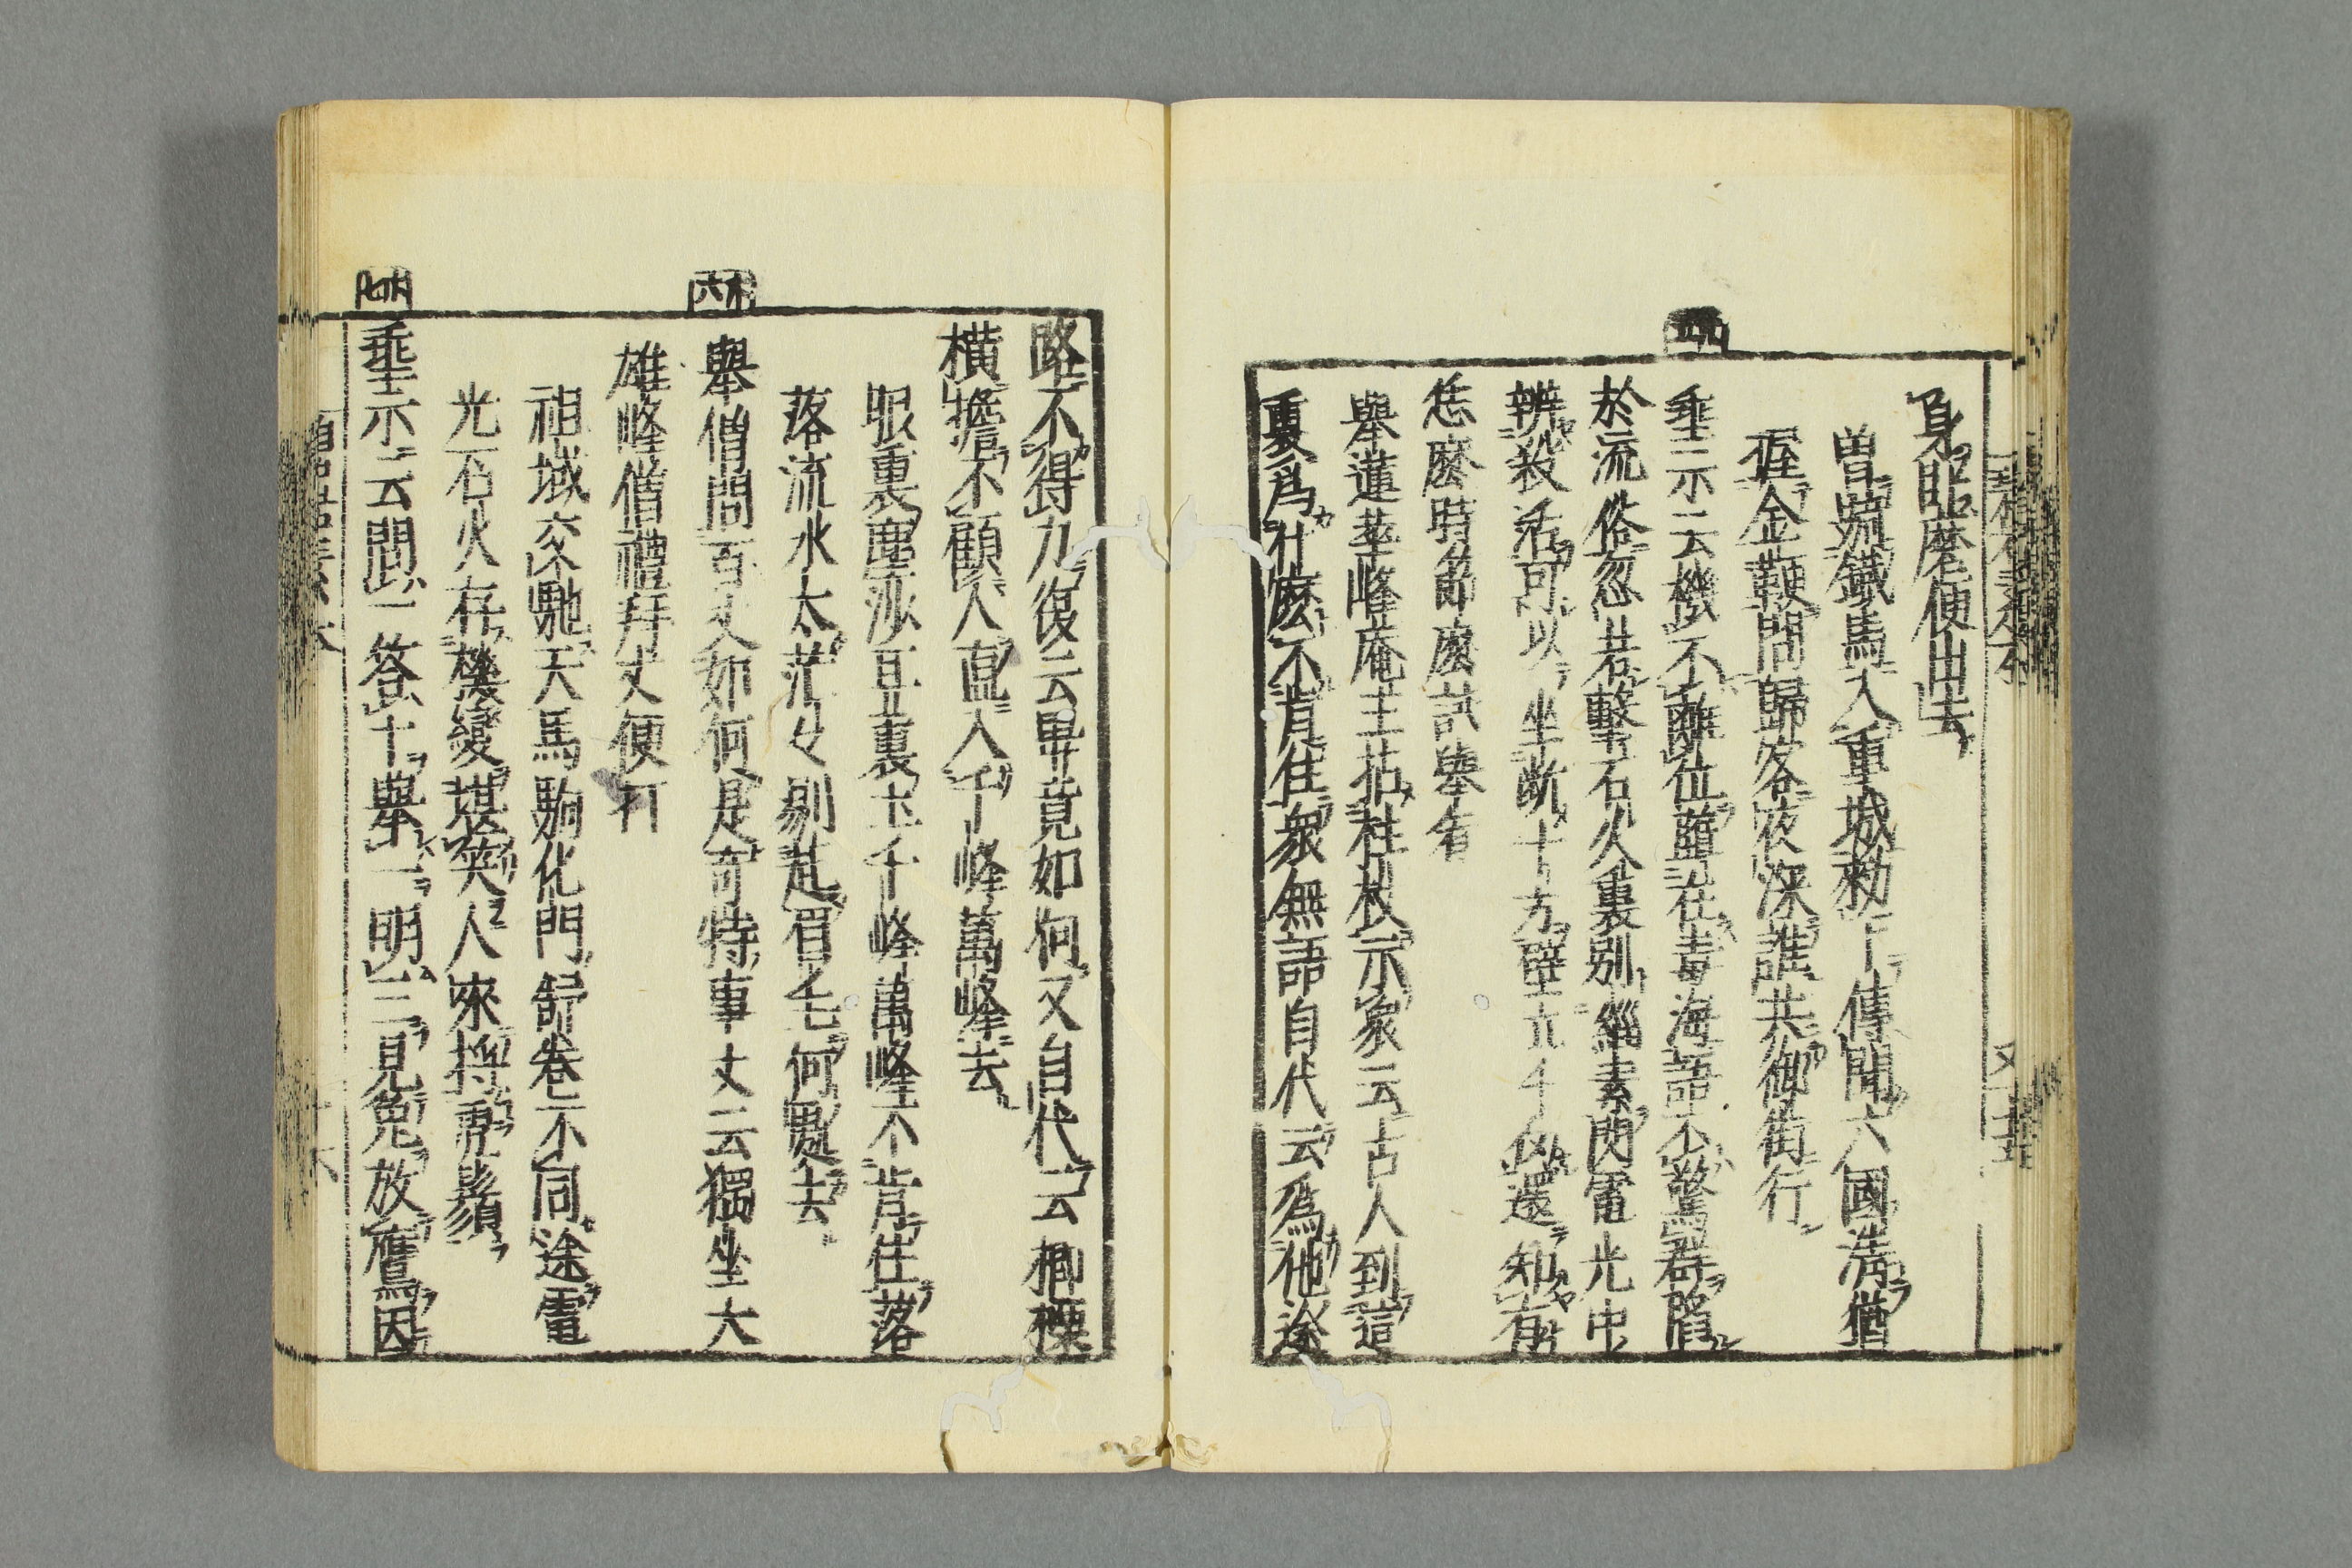 身臨磨便出去
曽騎鐵馬入重城勅下傳聞六國清猶
握金鞭問歸客夜深誰共御街行
垂示云機不離位墮在毒海語不驚群陷
於流俗忽若擊石火裏別緇素閃電光中
辨殺活可以坐断十方壁立千仭還知有
恁麽時節麽試舉看
舉蓮華峰庵主拈柱杖示衆云古人到這
裏爲什麽不肯住衆無語自代云爲他途
路不得力復云畢竟如何又自代云楖𣗖
横擔不顧人直入千峰萬峰去
眼裏塵沙耳裏土千峰萬峰不肯住落
落流水太茫々剔起眉毛何處去
六十
舉僧問百丈如何是奇特事丈云獨坐大
雄峰僧禮拜丈便打
祖域交馳天馬駒化門舒卷不同途電
光石火存機變堪笑人來捋虎鬚
垂示云問一答十舉一明三見兔放鷹因